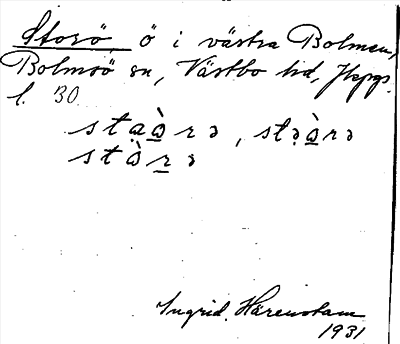 Storö ö i västra Bolmen,
Bolmsö sn, Västbo hd, Jkpgs.
l. 30
staà̱rə, stəà̱rə
stàṟə
Ingrid Härenstam
1931